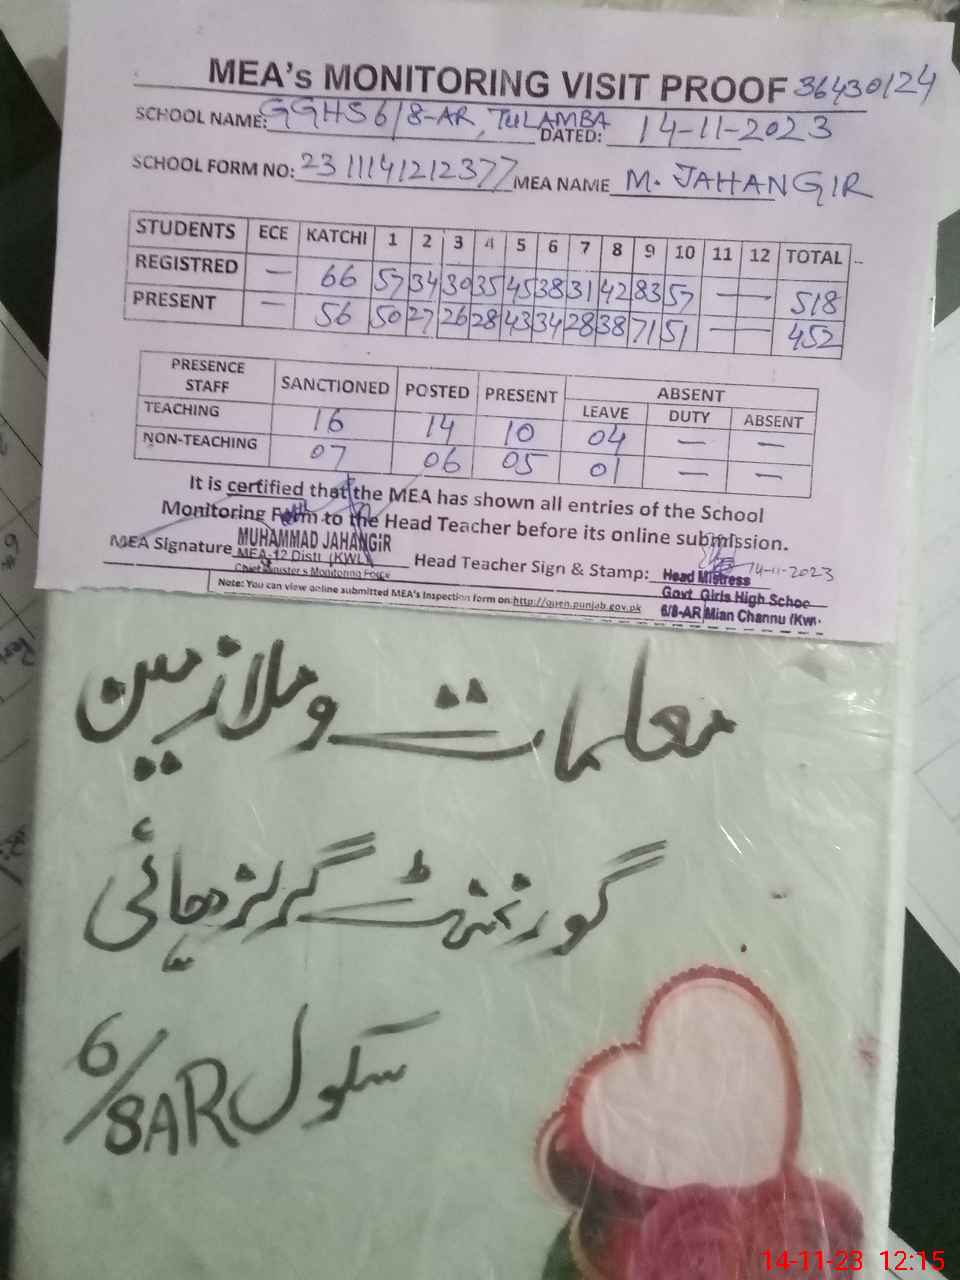 MEA's MONITORING VISIT PROOF 36430124
SCHOOL NAME: GGHS 6/8-AR, TULAMBA DATED: 14-11-2023
SCHOOL FORM NO: 23 11141212377 MEA NAME M. JAHANGIR
STUDENTS ECE KATCHI 1 2 3 4 5 6 7 8 9 10 11 12 TOTAL
REGISTRED — 66 57 34 30 35 45 38 31 42 83 57 — 518
PRESENT — 56 50 27 26 28 43 34 28 38 71 51 — 452
PRESENCE STAFF SANCTIONED POSTED PRESENT ABSENT
LEAVE DUTY ABSENT
TEACHING 16 14 10 04 — —
NON-TEACHING 07 06 05 01 — —
It is certified that the MEA has shown all entries of the School
Monitoring Form to the Head Teacher before its online submission.
MEA Signature MUHAMMAD JAHANGIR
MEA-12 Distt. (KWL)
Chief Minister's Monitoring Force
Head Teacher Sign & Stamp: 14-11-2023
Head Mistress
Govt Girls High Schoo
6/8-AR Mian Channu (Kw
Note: You can view online submitted MEA's Inspection form on: http://open.punjab.gov.pk
معلمات و ملازمین
گورنمنٹ گرلز ہائی
سکول 6/8AR
14-11-23 12:15